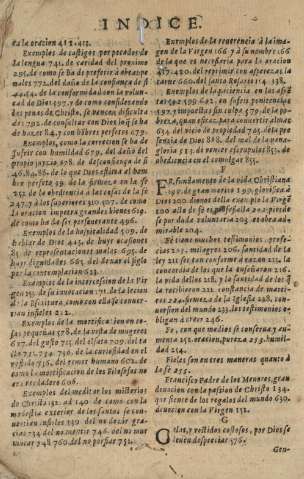 INDICE.
ta la oracion 412. 413.
Exemplos de castigos por pecados de
la lengua 741. de caridad del proximo
295. de como se ha de preferir a
males 772. del daño de la confiança de si
de la conformidad con la volun-
tad de Dios 597. y de como considerando
las penas de Christo, se vencen dificulta
des 792. de consultar con Dios lo que se ha
de hazer 847. y con hõbres perfetos 679.
Exemplos, como la correccion se ha de
sufrir con humildad 679. del daño del
propio juyzio 828. de desconfiança de si
46. 84. 88. de lo que Dios estima el bom
bre perfeto 39. de la firmeza en la fè
252. de la obediencia a las cosas de la fe
247. y a los superiores 310. 407. de como
la oracion impetra grandes bienes 619.
de como ha de ser perseuerante 496.
Exemplos de la hospitalidad 509. de
hechar de Dios 445. de huyr ocasiones
31. de representaciones mentales 695. de
huyr dignidades 565. del dexar el siglo
por la contemplacion 623.
Exemplos de la intercession de la Vir
gen 191. de su inuocacion 171. de la leccion
de la Escritura, como con ella se conuer-
tian infieles 212.
Exemplos de la mortificacion en co-
sas pequeñas 578. de la vista de mugeres
617. del gusto 715. del olfato 709. del ta
cto 721. 734. 730. de la curiosidad en el
vestido 756. del temor humano 602. de
como la mortificacion de los Filosofos no
era verdadera 606.
Exemplos del meditar los misterios
de Christo 132. al 140. de como con la
modestia exterior de los santos se con-
uertian infieles 330. del no dezir gra-
cias 734. del no mentir 746. del no mur
murar 748. 760. del no porfiar 752.
Exemplos de la reuerencia a la ima-
gen de la Virgen 166. y a su nombre 166
de la que es necessaria para la oracion
417. 420. del reprimir con aspereças la
carne 660. del santo Rosario 184. 138.
Exemplos de la paciencia en las afli-
en sufrir penitencias
597. impuestas sin culpa 579. de la po-
breza, que es eficaz, para conuertir almas
634. del vicio de propiedad 705. de la pre
sencia de Dios 818. del mal de la pena-
toria 735. de tener exemplares 851. de
obediencia en el comulgar 855.
F
FE, fundamento de la vida Christiana
199. de gran merito 199. gloriosa à
Dios 200. dianos della exemplo la Virgẽ
200. alta es de 
se por sola voluntad 203. es obra ad-
mirable 204.
Fè tiene muchos testimonios: profe-
cias 205. milagros 206. santidad de la
ley 211. ser tan conforme a razon 212. la
concordia de los que la enseñaron 216.
la vida dellos 218. y la santidad de los q̃
la recibieron 221. constancia de marti-
res 224. firmeza de la Iglesia 228. con-
uersion del mundo 235. los testimonios o-
bligan à creer 246.
Fe, con que medios se conserua y au-
menta 252. oracion, pureza 253. humil-
dad 254.
Fieles son en tres maneras quanto à
la fè 255.
Francisco Padre de los Menores, gran
deuocion con la passion de Christo 134.
que siente de los regalos del mundo 630.
deuocion con la Virgen 152.
G
Galas, y vestidos costosos, por Dios se
tienen de despreciar 576.
Gen-